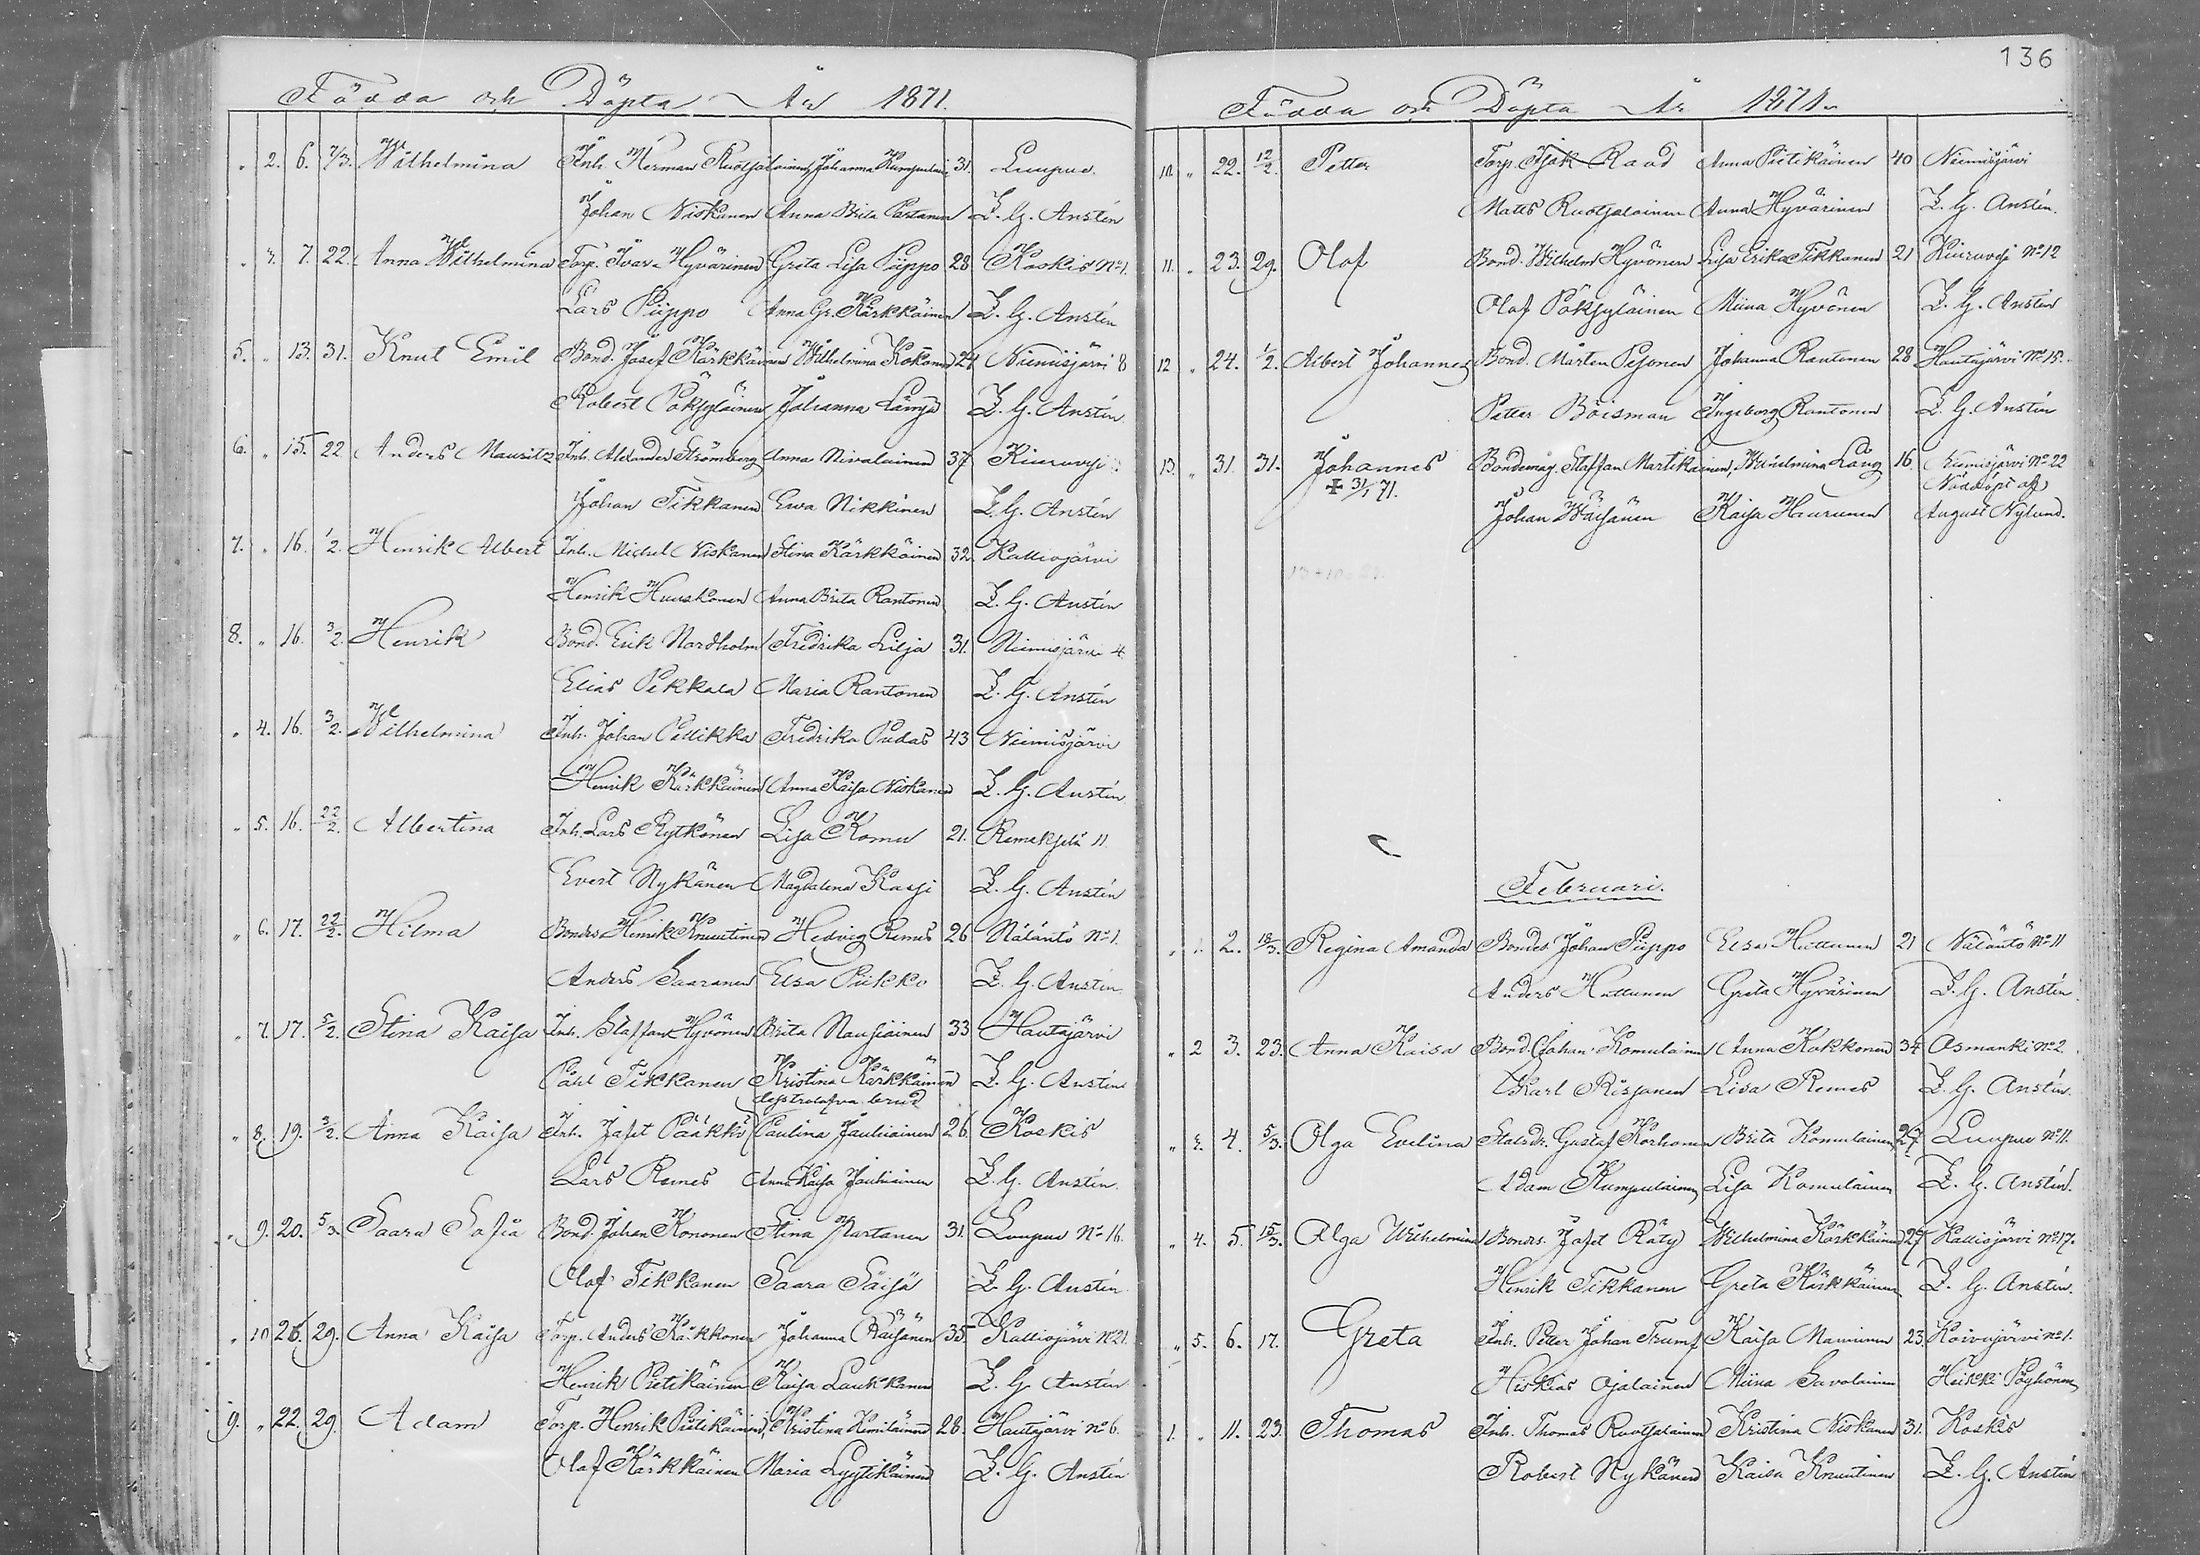 136
Födda och Döpta År 1871.
" 2. 6. 7/3. Wilhelmina Inh. Herman Ruotsalainen Johanna Kumpulain 31. Luupue.
Johan Niskanen Anna Brita Partanen Z. G. Anstén
" 3. 7. 22. Anna Wilhelmina Torp. Ivar Hyvärinen Greta Lisa Piippo 28 Koskis No 1.
Lars Piippo Anna Gr. Kärkkäinen Z. G. Anstén
5. " 13. 31. Knut Emil Bond. Josef Kärkkäinen Wilhelmina Kokonen 24 Niemisjärvi 8
Robert Pöksyläinen Johanna Långs Z. G. Anstén
6. " 15. 22 Anders Mauritz Inh. Alexander Strömberg Anna Nivalainen 37 Kiuruvesi
Johan Tikkanen Ewa Nikkinen Z. G. Anstén
7. " 16. 1/2. Henrik Albert Inh. Michel Niskanen Stina Kärkkäinen 32. Kalliojärvi
Henrik Huuskonen Anna Brita Rantonen Z. G. Anstén
8. " 16. 3/2. Henrik Bond. Erik Nordholm Fredrika Lilja 31. Niemisjärvi 4.
Elias Pekkala Maria Rantonen Z. G. Anstén
" 4. 16. 3/2. Wilhelmina Inh. Johan Pellikka Fredrika Pudas 43 Niemisjärvi
Henrik Kärkkäinen Anna Kaisa Niskanen Z. G. Anstén
" 5. 16. 22/2. Albertina Inh. Lars Rytkönen Lisa Komu 21. Remeksjelä 11.
Evert Nykänen Magdalena Kasji Z. G. Anstén
" 6. 17. 22/2. Hilma Bondes. Henrik Knuutinen Hedvig Remes 26 Näläntö No 1.
Anders Saaranen Elsa Piikko Z. G. Anstén
" 7. 17. 5/2. Stina Kaisa Inh. Staffan Hyvönen Brita Nousiainen 33 Hautajärvi
Påhl Tikkanen Kristina Kärkkäinen Z. G. Anstén
brud
" 8. 19. 3/2. Anna Kaisa Inh. Jafet Pääkkö Paulina Jauhiainen 26. Koskis
Lars Remes Anna Kaisa Jauhiainen Z. G. Anstén.
" 9. 20. 5/3. Saara Sofia Bond. Johan Kononen Stina Kartanen 31. Luupue No 16.
Olof Tikkanen Saara Säisä Z. G. Anstén
" 10 26. 29. Anna Kaisa Torp. Anders Kärkkonen Johanna Räisänen 35. Kalliojärvi No 21.
Henrik Pietikäinen Kaisa Laukkanen Z. G. Anstén
9. " 22. 29. Adam Torp. Henrik Pietikäinen, Kristina Komiläinen 28. Hautajärvi No 6.
Olof Kärkkäinen Maria Lyytikäinen Z. G. Anstén
Födda och Döpta År 1871.
10. " 22. 12/2. Petter Torp. Isak Raad Anna Pietikäinen 40 Niemisjärvi
Matts Ruotsalainen Anna Hyvärinen Z. G. Anstén.
11. " 23. 29. Olof Bond. Wilhelm Hyvönen Lisa Erika Tikkanen 21 Kiuruvesi No 12
Olof Pöksyläinen Miina Hyvönen Z. G. Anstén
12 " 24. 1/2. Albert Johannes Bond. Mårten Pesonen Johanna Rantonen 28 Hautajärvi No 15.
Petter Böisman Ingeborg Rantonen Z. G. Anstén
13. " 31. 31. Johannes Bondemåg. Staffan Martikainen, Wilhelmina Lång 16. Niemisjärvi No 22
✠ 31/1 71. Nöddöpt af
Johan Wäisänen Kaisa Huurunen August Nylund.
13+10=23.
Februari.
" 1. 2. 18/3. Regina Amanda Bondes. Johan Piippo Elsa Huttunen 21 Näläntö No 11
Anders Huttunen Greta Hyvärinen Z. G. Anstén.
" 2 3. 23. Anna Kaisa Bond. Johan Komulainen Anna Kokkonen 34 Osmanki No 2.
Karl Rissanen Lisa Remes Z. G. Anstén.
" 3. 4. 5/3. Olga Evelina Statsdr. Gustaf Korhonen Brita Komulainen 27 Luupue No 11.
Adam Kumpulainen Lisa Komulainen Z. G. Anstén.
" 4. 5. 15/3. Olga Wilhelmina Bondes. Jafet Räty Wilhelmina Kärkkäinen 27 Kalliojärvi No 17.
Henrik Tikkanen Greta Kärkkäinen Z. G. Anstén.
" 5. 6. 17. Greta Inh. Petter Johan Trumf Kaisa Manninen 23. Koivujärvi No 1.
Hiskias Ojalainen Miina Savolainen Heikki Pöyhönen
1. " 11. 23. Thomas Inh. Thomas Ruotsalainen Kristina Niskanen 31. Koskis
Robert Nykänen Kaisa Knuutinen Z. G. Anstén